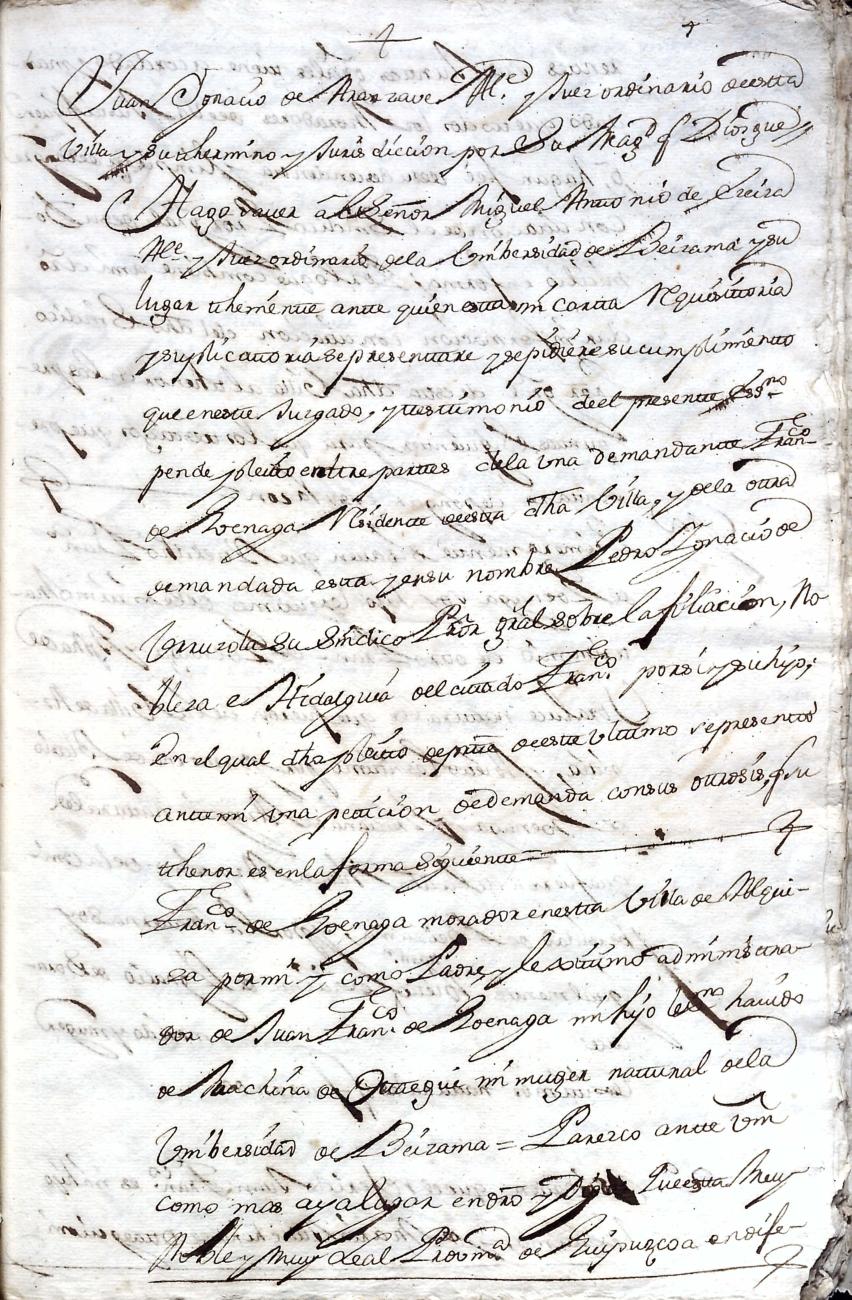 4
Juan Ygnacio de Aranzave Alle. y Juez ordinario deestta
Villa y su thermino y Jurisdiccion por Su Magd. q Dios gue
Hago saver â el Señor Miguel Anttonio de Ereiza
Alle. y Juez ordinario de la Vmbersidad de Beizama y su
lugar theniente antte quien estta mi cartta Requisittoria
y suplicattoria se presenttare y se pidiere su cumplimientto
que en estte Juzgado, y testtimonio de el presentte Essno
pende pleitto enttre parttes de la vna demandantte Franco
de Roenaga Residente deestta dha Villa, y de la ottra
demandada estta y en su nombre Pedro Ygnacio de
Vrruzola su Sindico Pror gral sobre la filiacion, No
bleza e Hidalguia del cittado Franco. por si y su hijo;
En el qual dho pleitto de ptte de estte vltimo se presentto
antte mi vna petticion de demanda con sus ottrosis, q su
thenor es en la forma siguientte
Franco de Roenaga morador en estta Villa de Alqui-
za por mi y como Padre, y lexittimo administtra
dor de Juan Franco. de Roenaga mi hijo lexmo havido
de Machina de Ottaegui mi muger natural de la
Vmbersidad de Beizama = Parezco antte Vm
como mas aya lugar en dro y Digo Que estta Muy
Noble y Muy Leal Provinza de Guipuzcoa en dife-